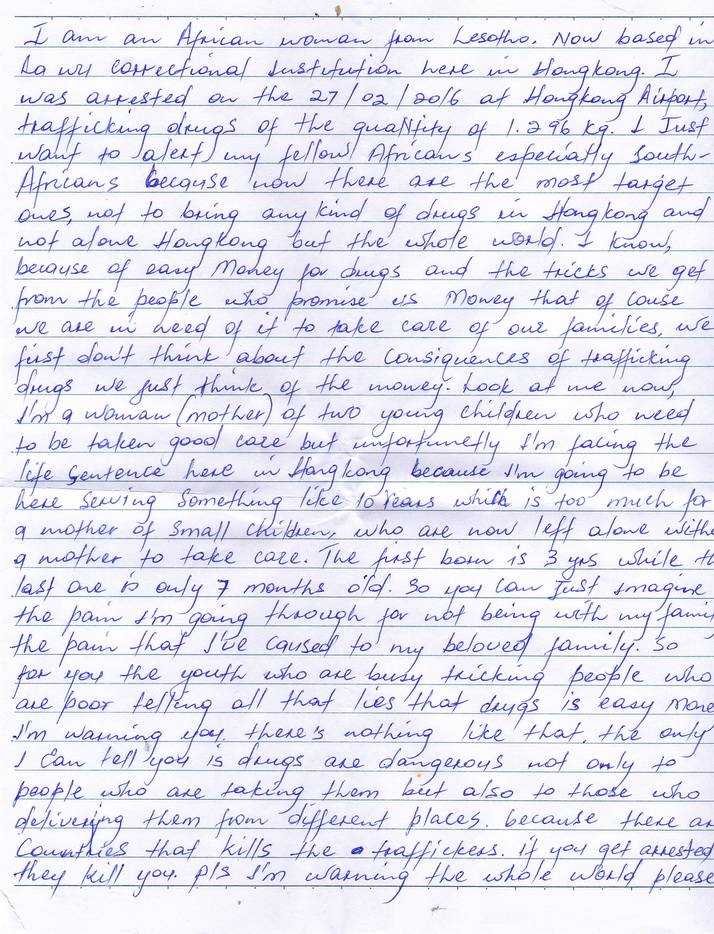 I am an African woman from Lesotho. Now based in
La wu correctional Institution here in Hongkong. I
was arrested on the 27/02/2016 at Hongkong Airport,
trafficking drugs of the quantity of 1.296 kg. I Just
want to alert my fellow Africans especially South-
Africans because now there are the most target
ones, not to bring any kind of drugs in Hongkong and
not alone Hongkong but the whole world. I know,
because of easy Money for drugs and the tricks we get
from the people who promise us Money that of couse
we are in need of it to take care of our families, we
first don't think about the Consiquences of trafficking
drugs we just think of the money. Look at me now,
I'm a woman (mother) of two young children who need
to be taken good care but unfortunetly I'm facing the
life sentence here in Hongkong because I'm going to be
here serving something like 10 Years which is too much for
a mother of small children, who are now left alone witho
a mother to take care. The first born is 3 yrs while th
last one is only 7 months old. So you can Just imagine
the pain I'm going through for not being with my famil
the pain that I've caused to my beloved family. So
for you the youth who are busy tricking people who
are poor telling all that lies that drugs is easy Mone
I'm warning you, there's nothing like that, the only
I can tell you is drugs are dangerous not only to
people who are taking them but also to those who
delivering them from different places. because there ar
Countries that kills the traffickers. if you get arrested
they kill you. Pls I'm warning the whole world please